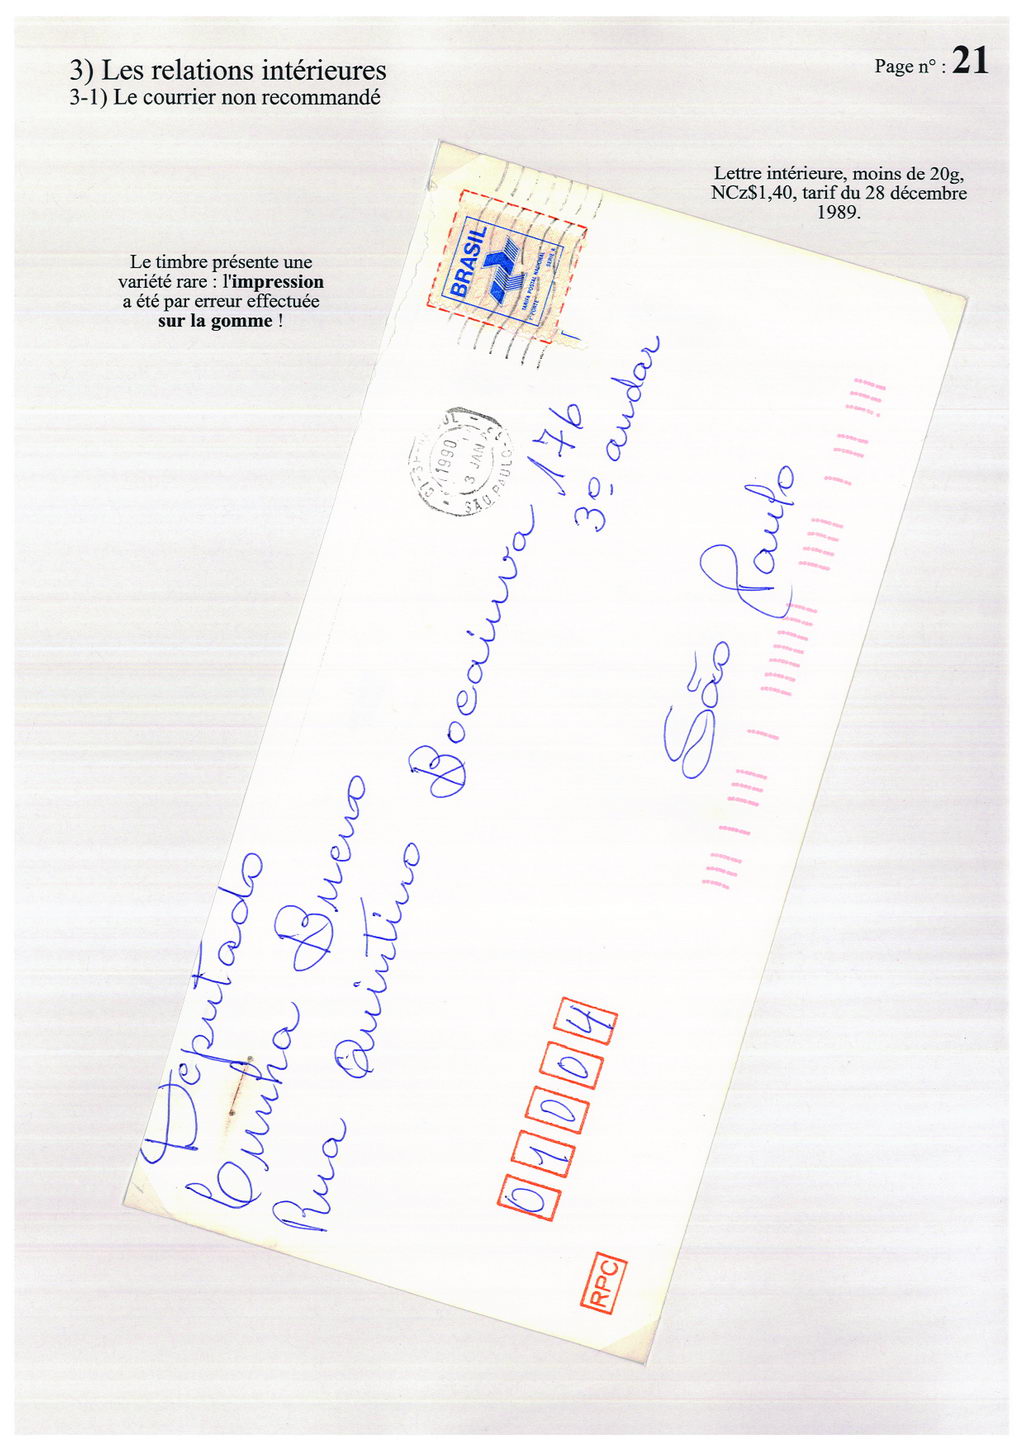 3) Les relations intérieures
3-1) Le courrier non recommandé
Page n° : 21
Lettre intérieure, moins de 20g,
NCz$1,40, tarif du 28 décembre
1989.
Le timbre présente une
variété rare : l'impression
a été par erreur effectuée
sur la gomme !
BRASIL
TARIFA POSTAL NACIONAL
1º PORTE SÉRIE A
1990
3 JAN
SÃO PAULO
Deputado
Cunha Bueno
Rua Quintino Bocaiuva 176
3º andar
São Paulo
01004
RPC